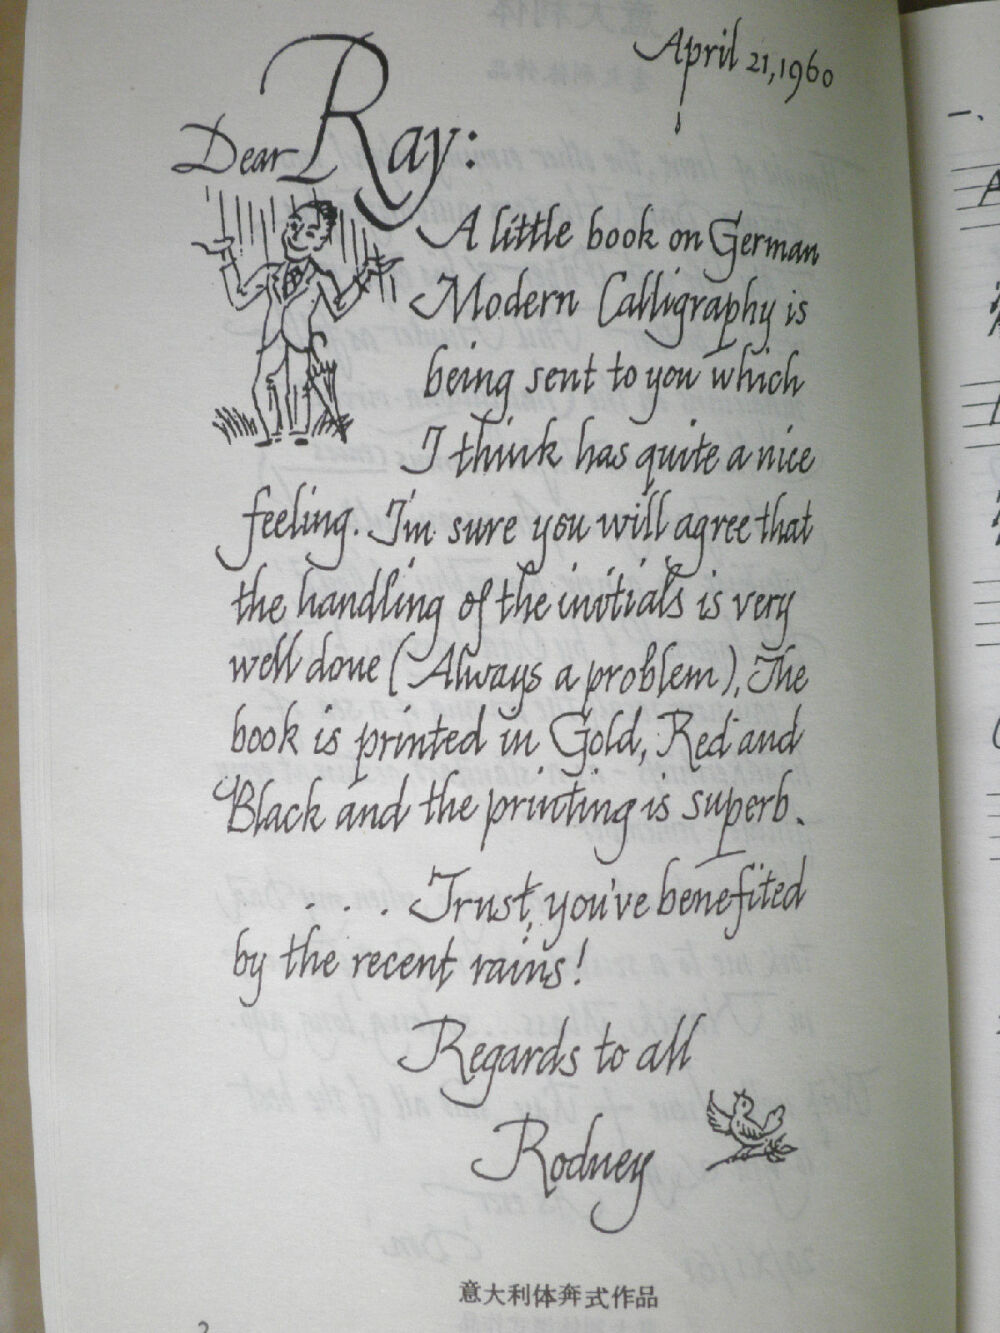 April 21, 1960
Dear Ray:
A little book on German
Modern Calligraphy is
being sent to you which
I think has quite a nice
feeling. I'm sure you will agree that
the handling of the initials is very
well done (Always a problem). The
book is printed in Gold, Red and
Black and the printing is superb.
.... Trust you've benefited
by the recent rains!
Regards to all
Rodney
意大利体奔式作品
2
一、